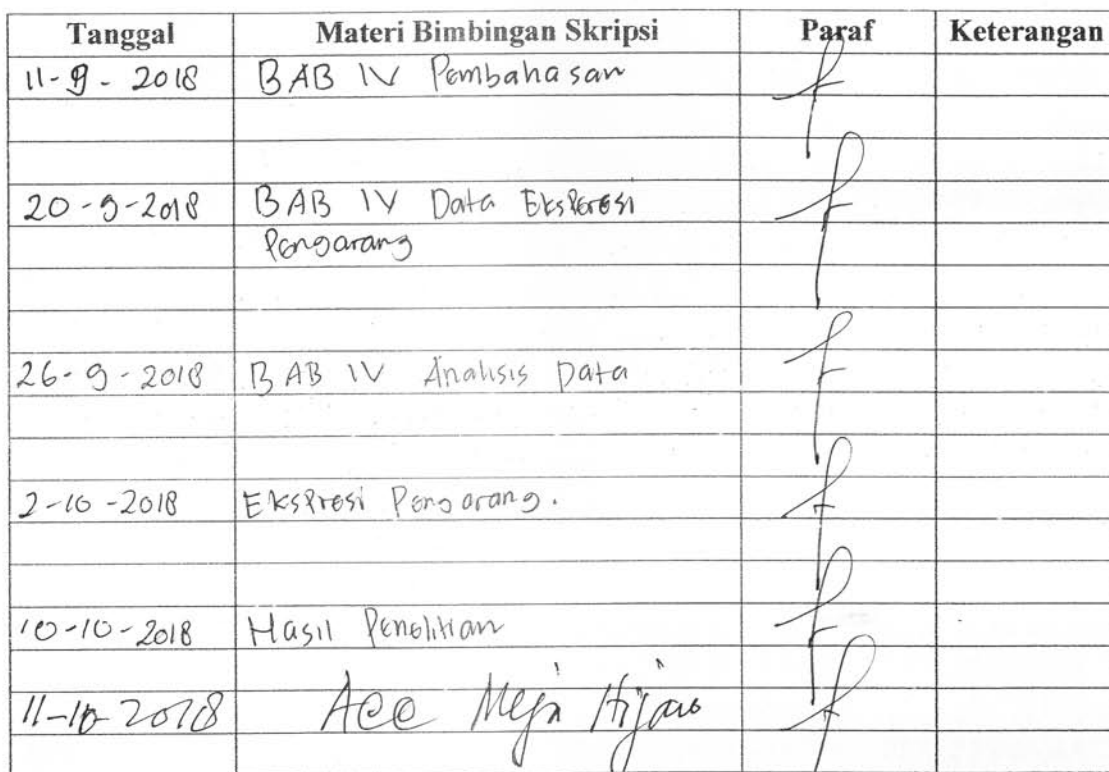 Tanggal Materi Bimbingan Skripsi Paraf Keterangan
11-9-2018 BAB IV Pembahasan
20-9-2018 BAB IV Data Eksperesi
Pengarang
26-9-2018 BAB IV Analisis Data
2-10-2018 Ekspresi Pengarang.
10-10-2018 Hasil Penelitian
11-10-2018 Acc Meja Hijau